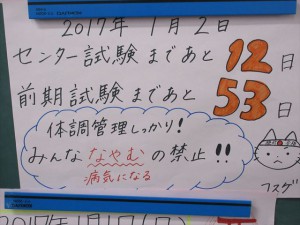 2017年 1月2日
センター試験まであと 12日
前期試験まであと 53日
体調管理しっかり!
みんな なやむの禁止!!
病気になる
フスゲ
2017年1月1日(日)